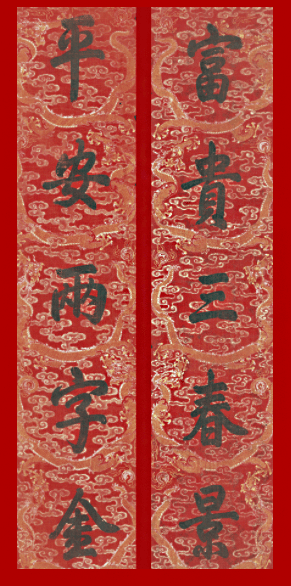 富貴三春景
平安兩字金